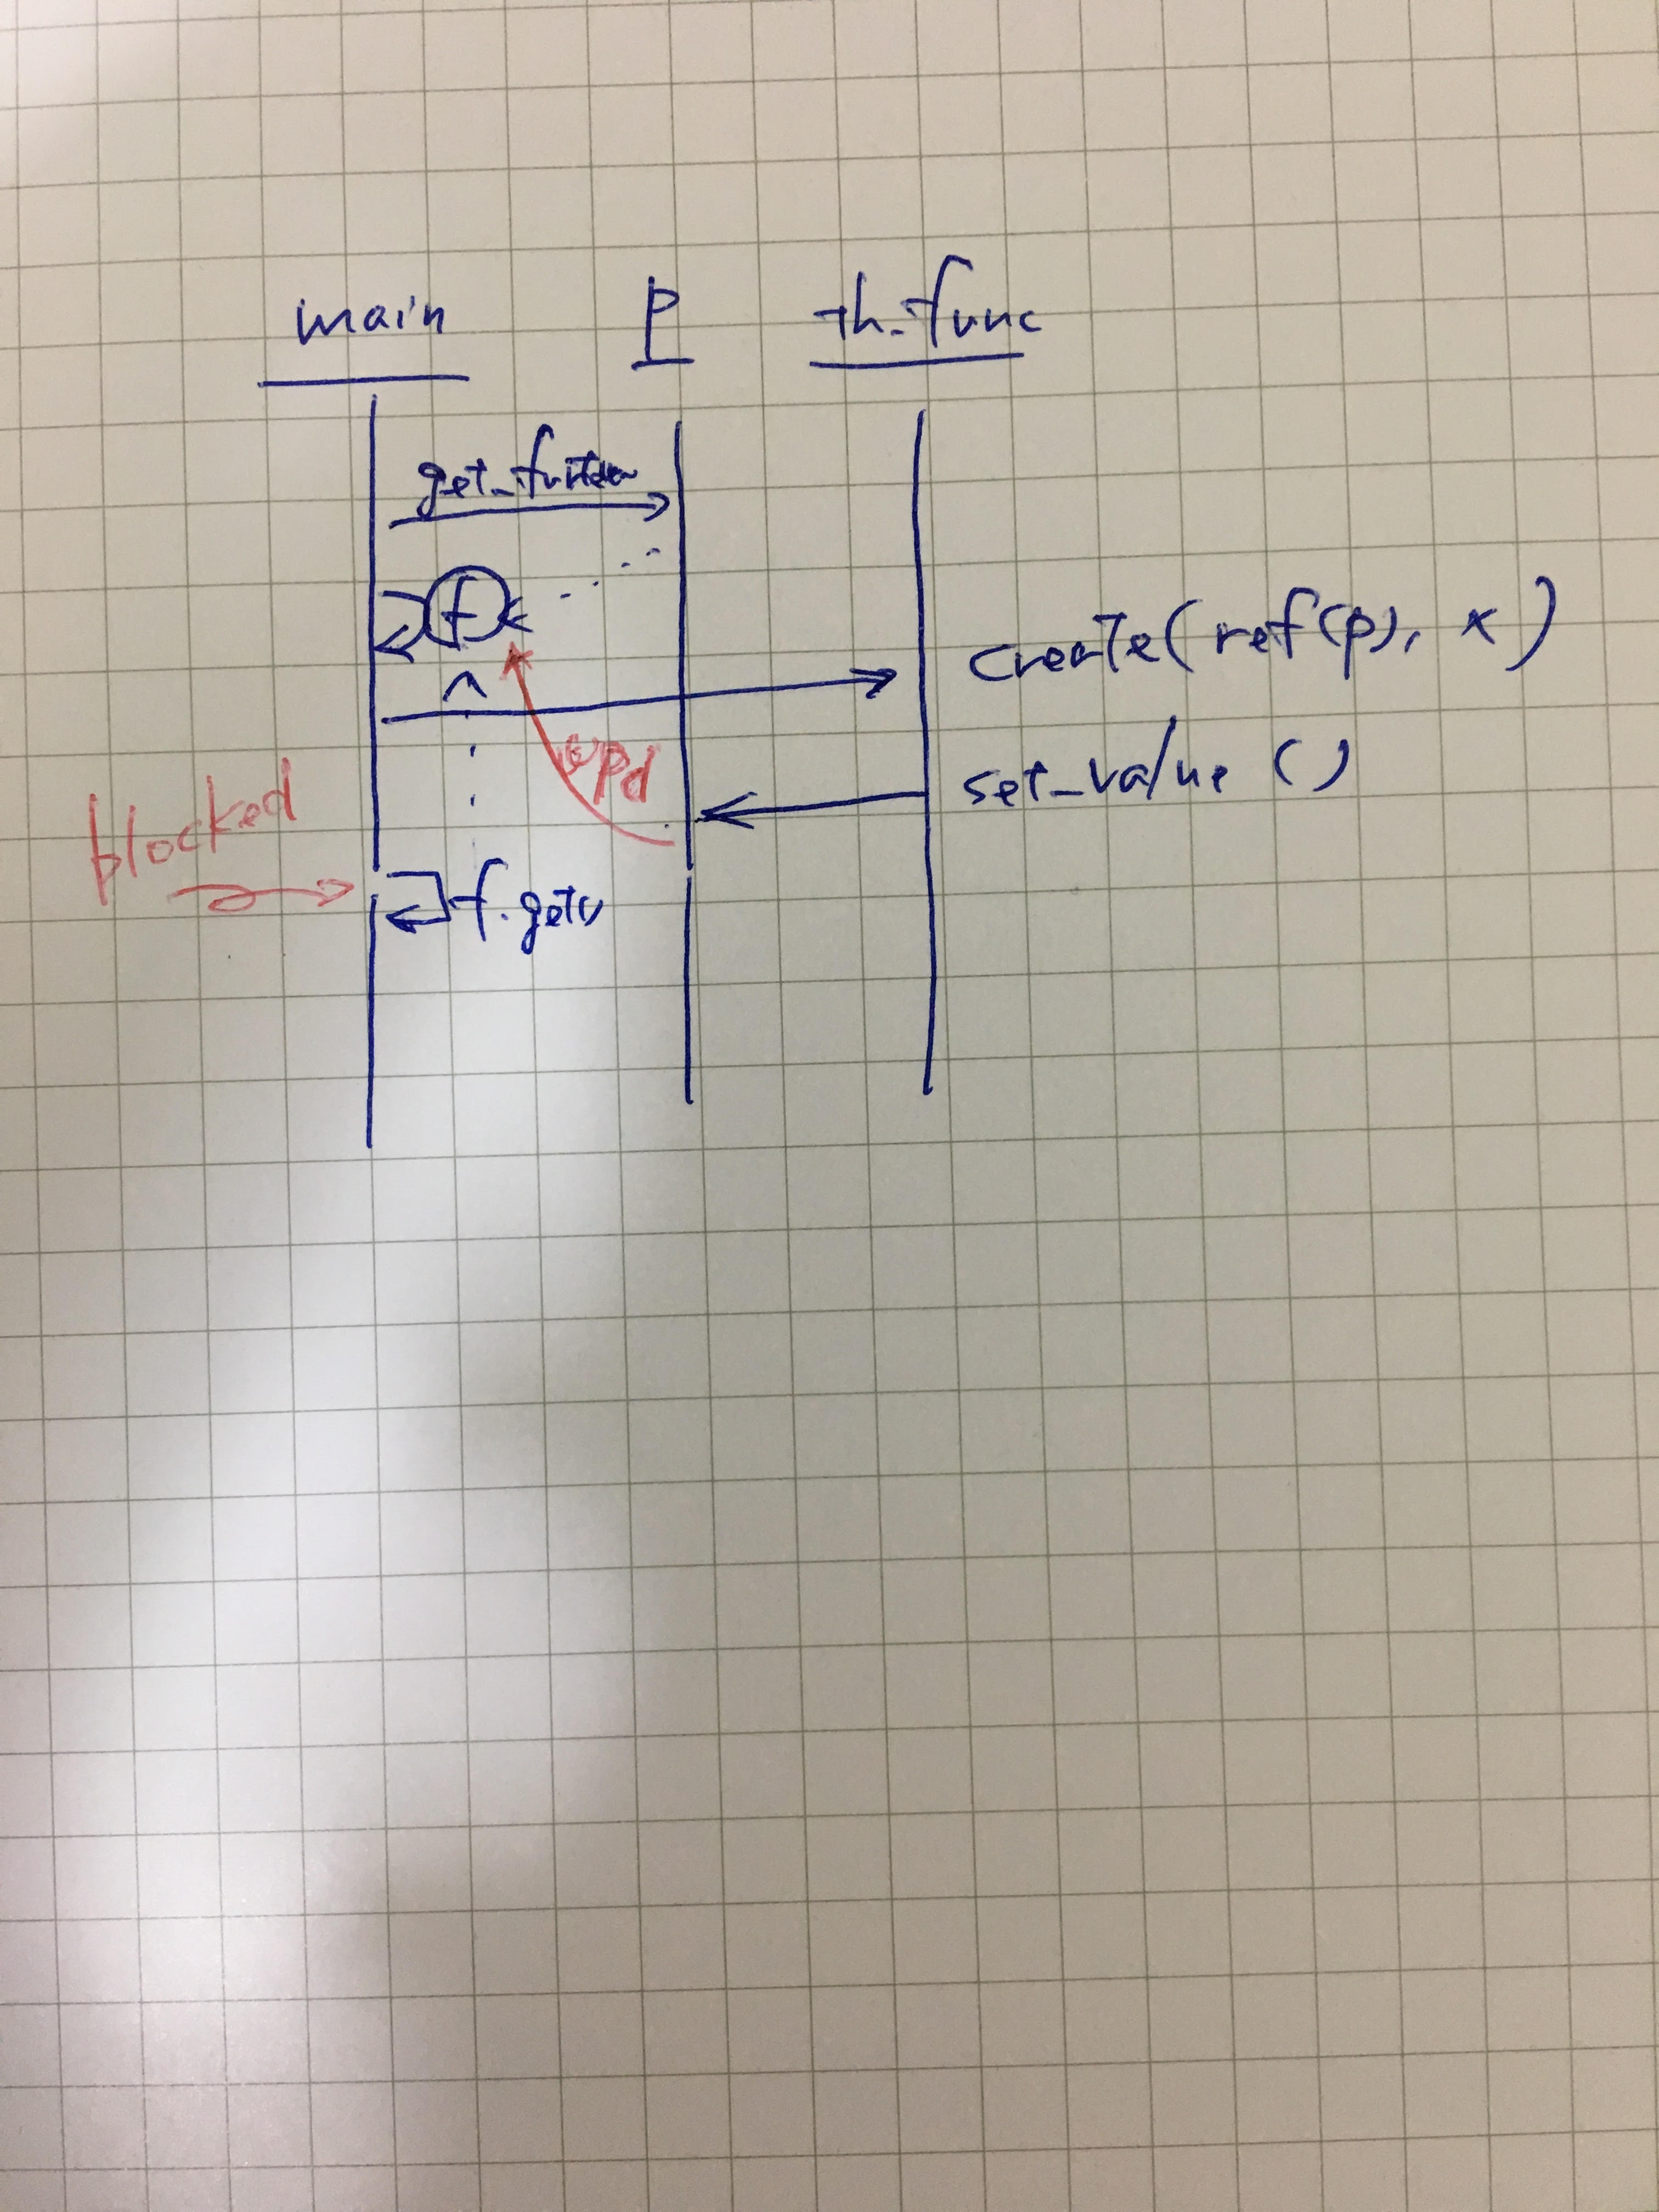 main P th_func
get_future
f
create(ref(p), x)
set_value ()
upd
blocked
f.get()